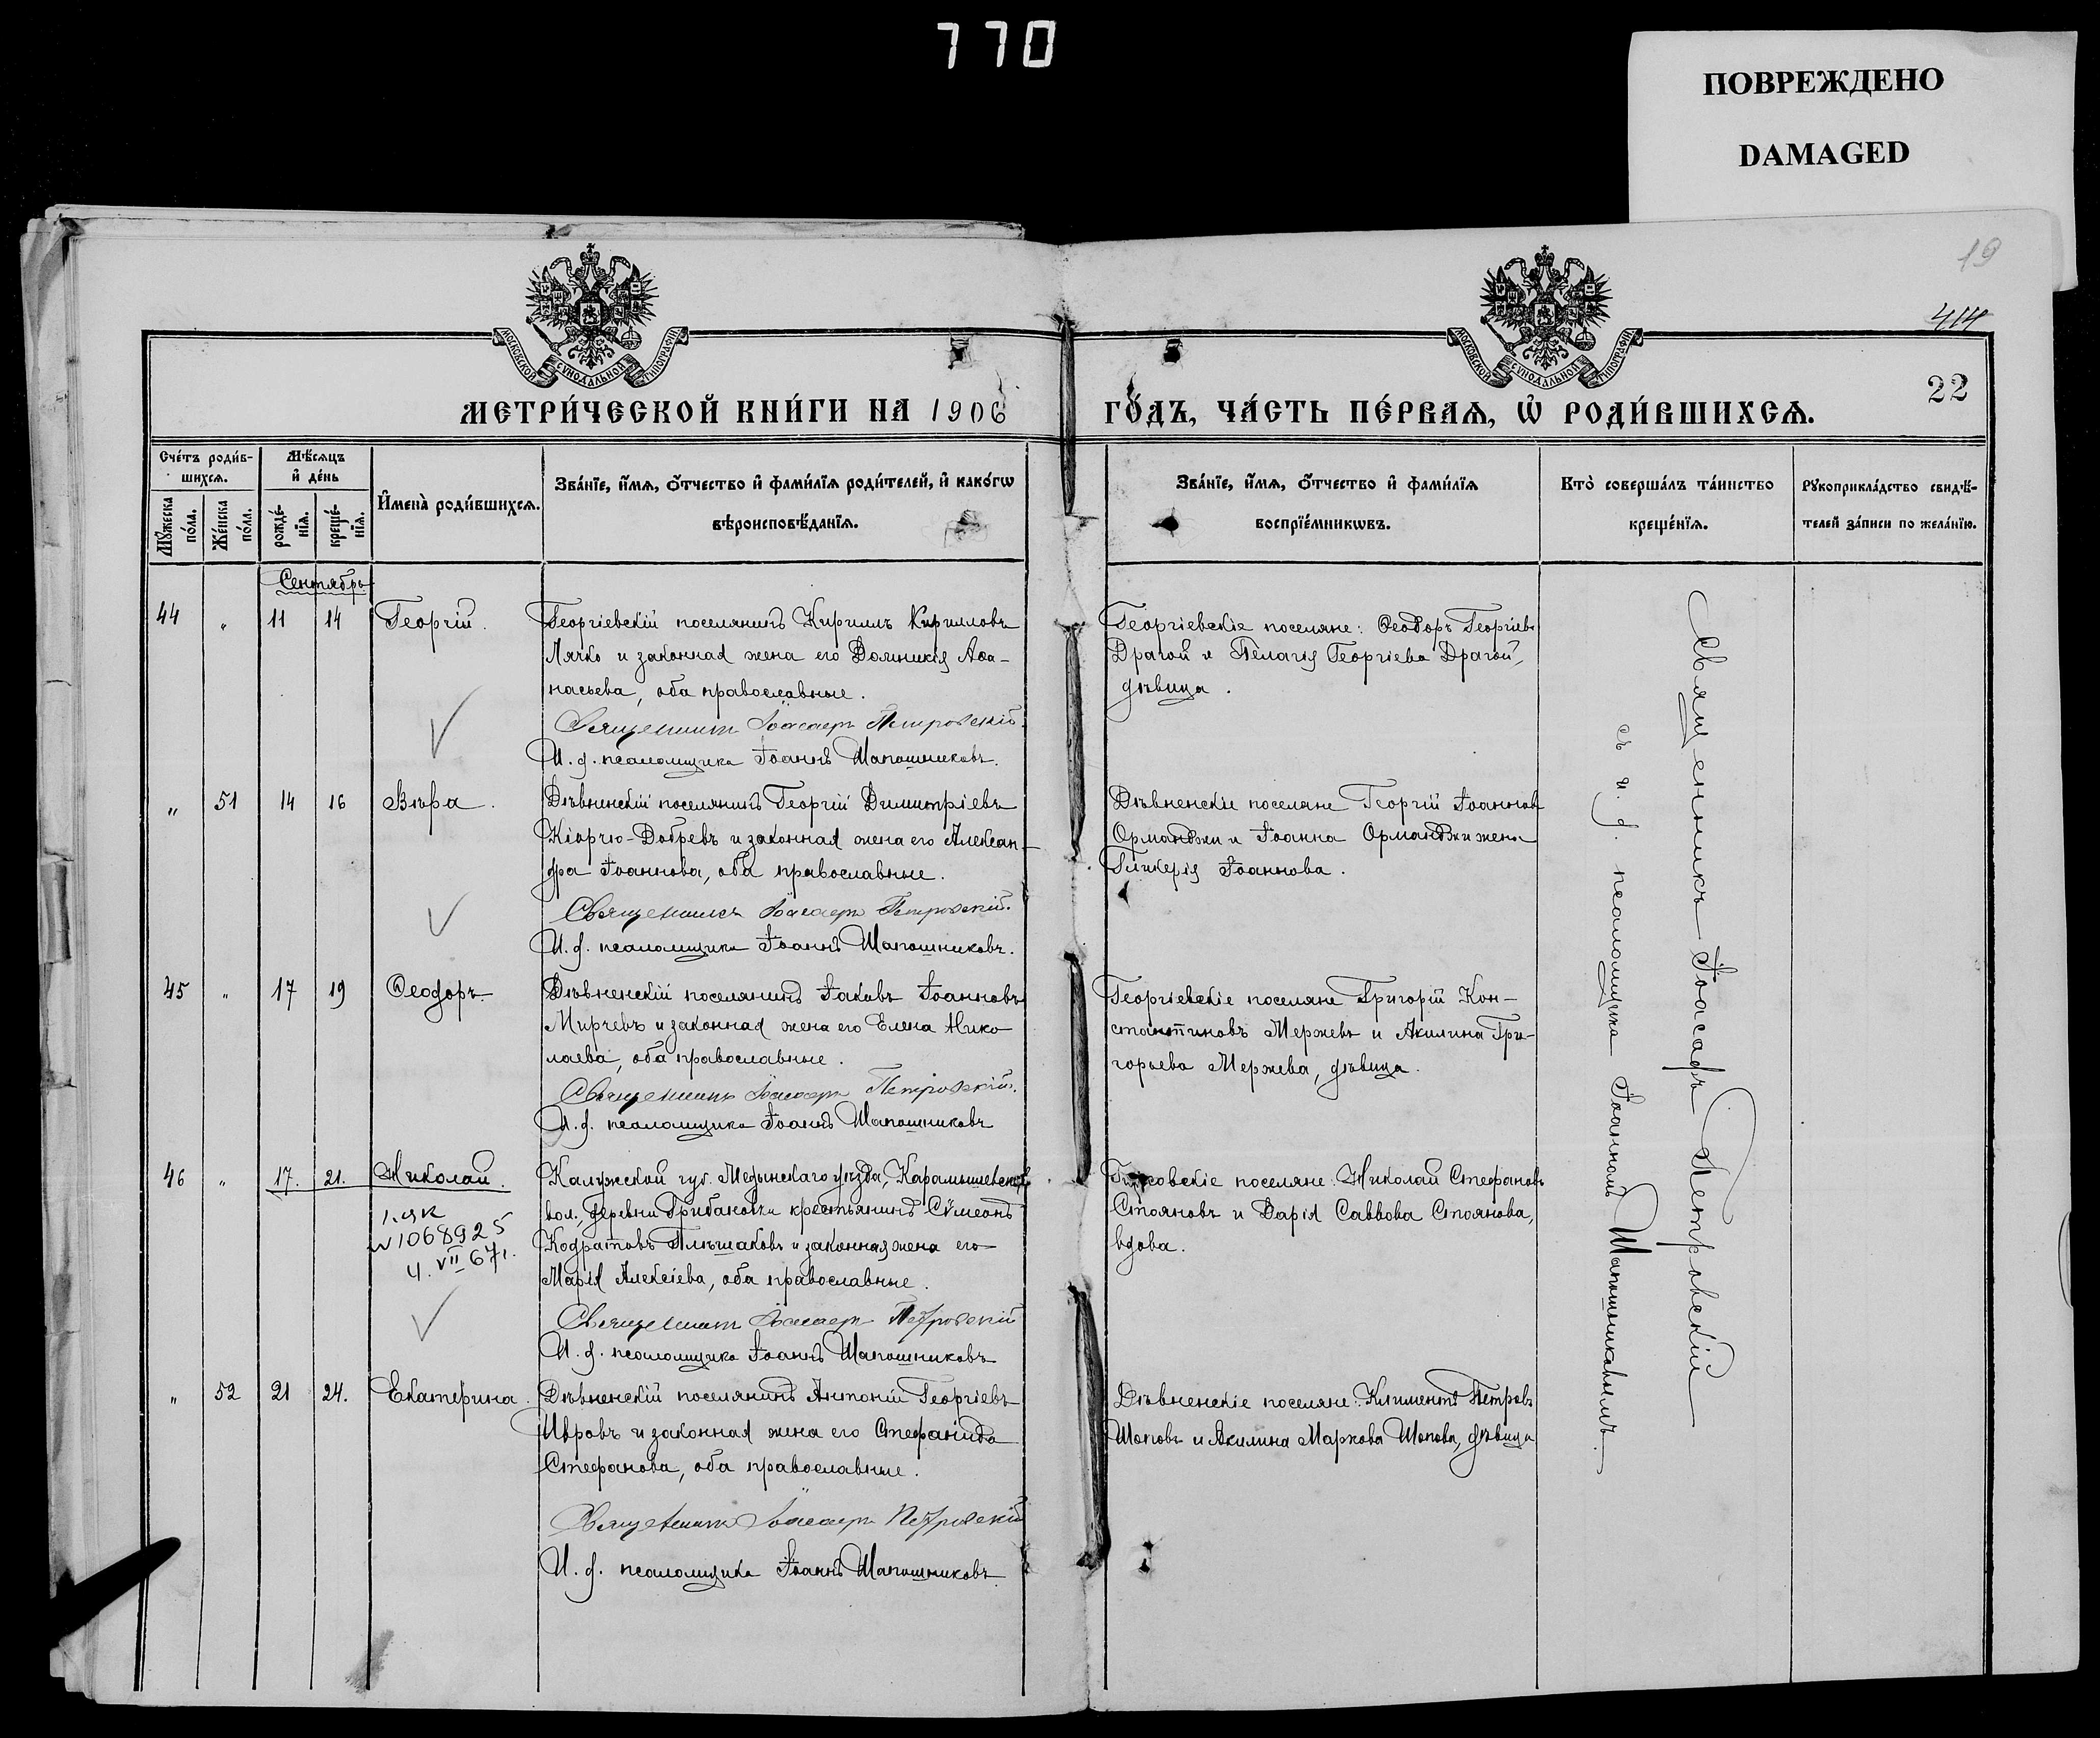 770
ПОВРЕЖДЕНО
DAMAGED
19
414
22
МОСКОВСКОЙ СѴНОДАЛЬНОЙ ТИПОГРАФІИ
МОСКОВСКОЙ СѴНОДАЛЬНОЙ ТИПОГРАФІИ
МЕТРИ́ЧЕСКОЙ КНИ́ГИ НА 1906 ГО́ДЪ, ЧА́СТЬ ПЕ́РВАѦ, Ѡ РОДИ́ВШИХСѦ.
Сче́тъ роди́в-
шихсѧ.
Мꙋжеска по́ла.
Же́нска по́ла.
Мѣ́сѧцъ
и҆ де́нь
рожде́-нїѧ.
креще́-нїѧ.
И҆мена̀ роди́вшихсѧ.
Зва́нїе, и҆́мѧ, ѻ҆́тчество и҆ фами́лїѧ роди́телей, и҆ како́гѡ
вѣроисповѣ́данїѧ.
Зва́нїе, и҆́мѧ, ѻ҆́тчество и҆ фами́лїѧ
воспрїе́мникѡвъ.
Кто̀ соверша́лъ та́инство
креще́нїѧ.
Рꙋкоприкла́дство свидѣ́-
телей за́писи по жела́нїю.
Сентябрь
44 " 11 14 Георгій.
Георгіевскій поселянинъ Кириллъ Кирилловъ
Лячко и законная жена его Домникія Аѳа-
насьева, оба православные.
Священникъ Іоасафъ Петровскій.
И. д. псаломщика Іоаннъ Шапошниковъ.
Георгіевскіе поселяне: Ѳеодоръ Георгіевъ
Драгой и Пелагія Георгіева Драгой,
дѣвица.
" 51 14 16 Вѣра.
Дѣвненскій поселянинъ Георгій Димитріевъ
Кіорчю-Добревъ и законная жена его Алексан-
дра Іоаннова, оба православные.
Священникъ Іоасафъ Петровскій.
И. д. псаломщика Іоаннъ Шапошниковъ.
Дѣвненскіе поселяне Георгій Іоанновъ
Орманджи и Іоанна Орманджи жена
Гликерія Іоаннова.
45 " 17 19 Ѳеодоръ.
Дѣвненскій поселянинъ Іаковъ Іоанновъ
Мирчевъ и законная жена его Елена Нико-
лаева, оба православные.
Священникъ Іоасафъ Петровскій.
И. д. псаломщика Іоаннъ Шапошниковъ
Георгіевскіе поселяне Григорій Кон-
стантиновъ Мержевъ и Акилина Гри-
горьева Мержева, дѣвица.
46 " 17. 21. Николай.
1068925
4. VII 67г.
Калужской губ. Медынскаго уѣзда, Карамышевской
вол., деревни Грибановки крестьянинъ Сѵмеонъ
Кодратовъ Плѣшаковъ и законная жена его
Марія Алексіева, оба православные.
Священникъ Іоасафъ Петровскій
И. д. псаломщика Іоаннъ Шапошниковъ
поселяне: Николай Стефановъ
Стояновъ и Дарія Саввова Стоянова,
вдова.
" 52 21 24. Екатерина.
Дѣвненскій поселянинъ Антоній Георгіевъ
Ивровъ и законная жена его Стефанида
Стефанова, оба православные.
Священникъ Іоасафъ Петровскій
И. д. псаломщика Іоаннъ Шапошниковъ.
Дѣвненскіе поселяне: Климентъ Петровъ
Шоповъ и Акилина Маркова Шопова, дѣвица
Священникъ Іоасафъ Петровскій
съ и. д. псаломщика Іоанномъ Шапошниковымъ.